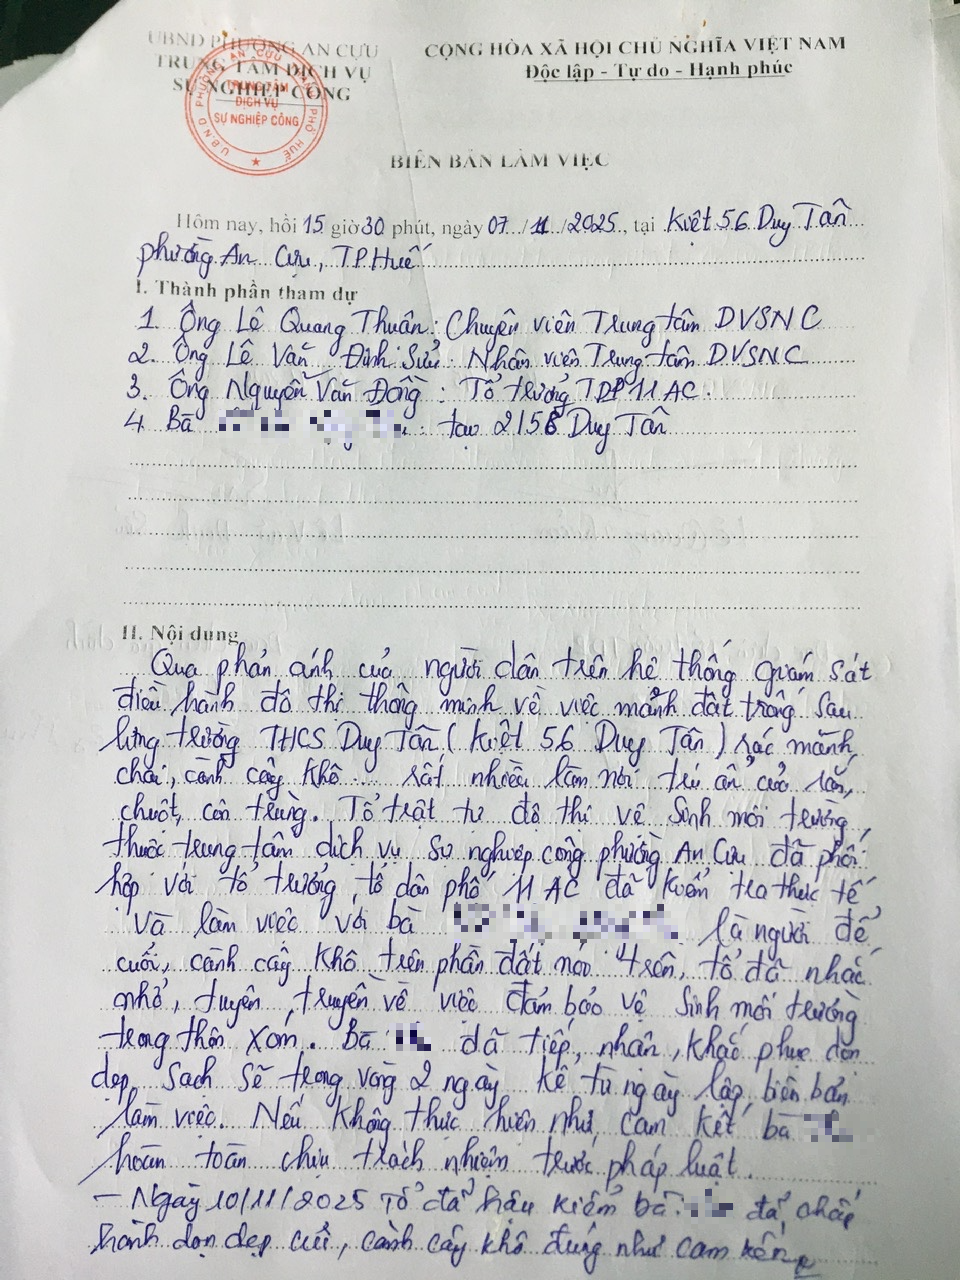 UBND PHƯỜNG AN CỰU
TRUNG TÂM DỊCH VỤ
SỰ NGHIỆP CÔNG
CỘNG HÒA XÃ HỘI CHỦ NGHĨA VIỆT NAM
Độc lập - Tự do - Hạnh phúc
TRUNG TÂM
DỊCH VỤ
SỰ NGHIỆP CÔNG
BIÊN BẢN LÀM VIỆC
Hôm nay, hồi 15 giờ 30 phút, ngày 07/11/2025, tại Kiệt 56 Duy Tân
phường An Cựu, TP Huế
I. Thành phần tham dự
1. Ông Lê Quang Thuân: Chuyên viên Trung tâm DVSNC
2. Ông Lê Văn Đình Sửu: Nhân viên Trung tâm DVSNC
3. Ông Nguyễn Văn Đồng: Tổ trưởng TDP 11 AC.
4. Bà : tại 2/56 Duy Tân
II. Nội dung
Qua phản ánh của người dân trên hệ thống giám sát
điều hành đô thị thông minh về việc mảnh đất trống sau
lưng trường THCS Duy Tân (Kiệt 56 Duy Tân) rác mảnh
chai, cành cây khô ... rất nhiều làm nơi trú ẩn của rắn,
chuột, côn trùng. Tổ trật tự đô thị vệ sinh môi trường,
thuộc trung tâm dịch vụ sự nghiệp công phường An Cựu đã phối
hợp với tổ trưởng tổ dân phố 11 AC đã kiểm tra thực tế
và làm việc với bà là người để
củi, cành cây khô trên phần đất nói trên, tổ đã nhắc
nhở, tuyên truyền về việc đảm bảo vệ sinh môi trường
trong thôn xóm. Bà đã tiếp nhận, khắc phục dọn
dẹp sạch sẽ trong vòng 2 ngày kể từ ngày lập biên bản
làm việc. Nếu không thực hiện như cam kết bà
hoàn toàn chịu trách nhiệm trước pháp luật.
- Ngày 10/11/2025 Tổ đã hậu kiểm bà đã chấp
hành dọn dẹp củi, cành cây khô đúng như cam kết